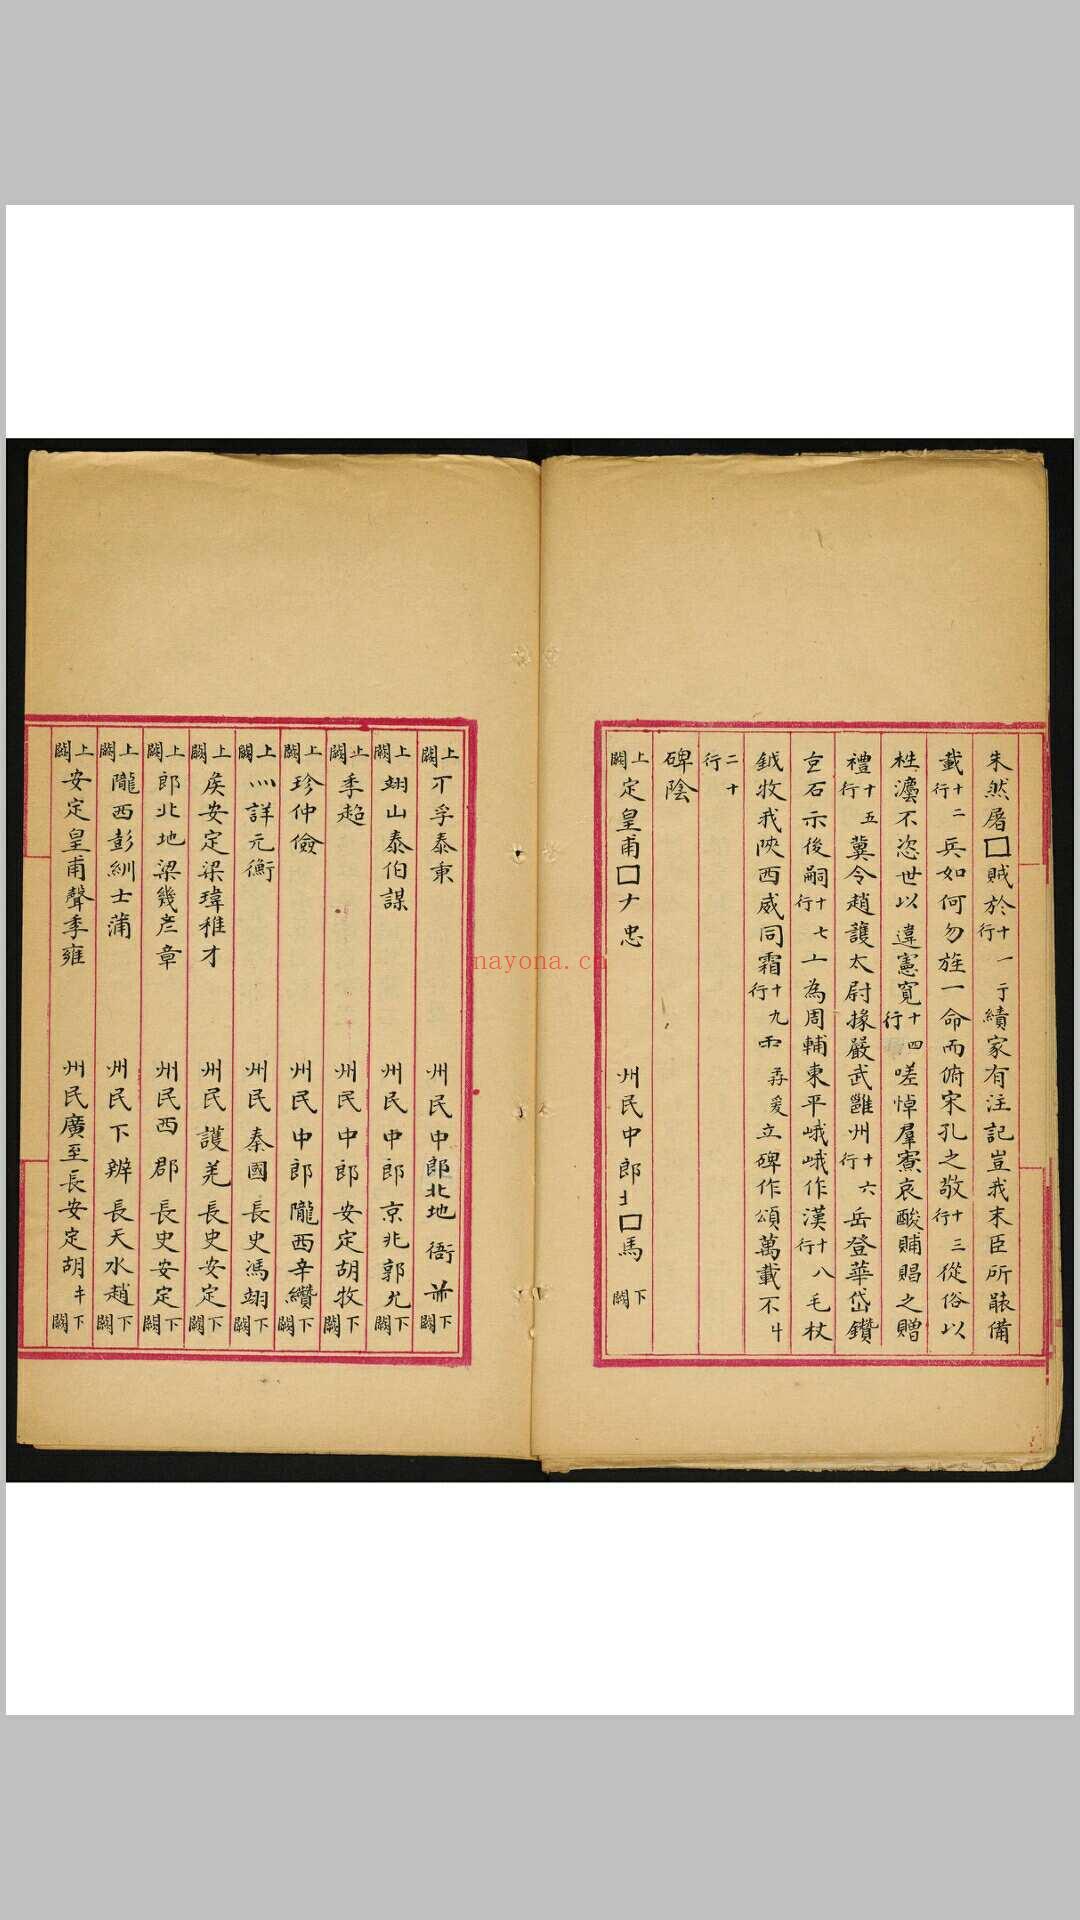 朱然屠□賊於十一行亍績家有注記豈我末臣所能備
載十二行兵如何勿旌一命而俯宋孔之敬十三行從俗以
甡灋不恣世以違憲寬十四行嗟悼羣寮哀酸賻賵之贈
禮十五行冀令趙護太尉掾嚴武雝州十六行岳登華岱鑽
玄石示後嗣十七行丄為周輔東平峨峨作漢十八行毛杖
鉞牧我陝西威同霜十九行雨 爰立碑作頌萬載不
二十行
碑陰
上闕定皇甫□ナ忠 州民中郎□馬 下闕
上闕丌孚泰秉 州民中郎北地衙 下闕
上闕翊山泰伯謀 州民中郎京兆郭允 下闕
上闕季超 州民中郎安定胡牧 下闕
上闕珍仲儉 州民中郎隴西辛纘 下闕
上闕詳元衡 州民秦國長史馮翊 下闕
上闕矦安定梁瑋稚才 州民護羌長史安定 下闕
上闕郎北地梁幾彥章 州民西郡長史安定 下闕
上闕隴西彭紃士蒲 州民下辨長天水趙 下闕
上闕安定皇甫聲季雍 州民廣至長安定胡 下闕
nayona.cn